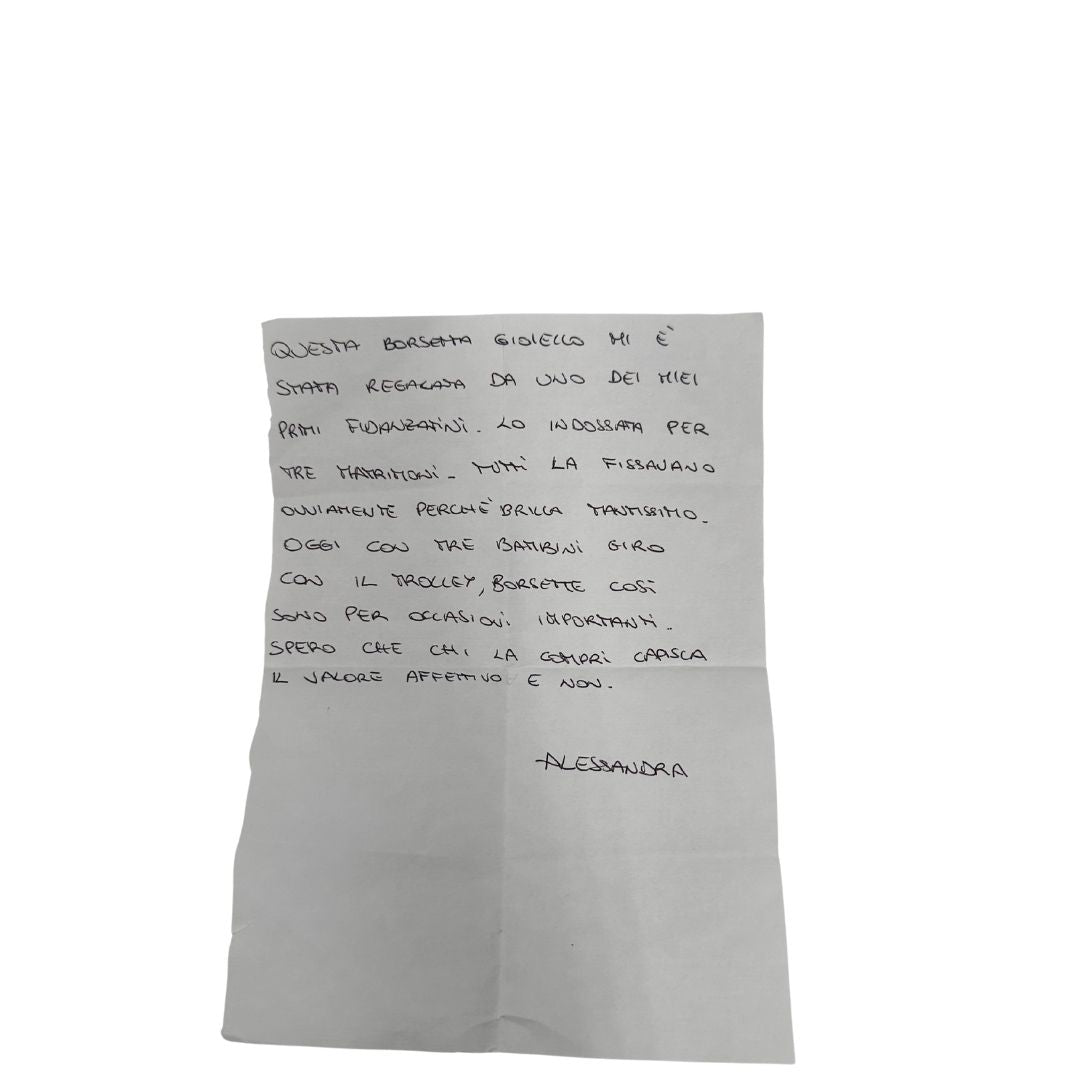 QUESTA BORSETTA GIOIELLO MI È
STATA REGALATA DA UNO DEI MIEI
PRIMI FIDANZATINI. LO INDOSSATA PER
TRE MATRIMONI. TUTTI LA FISSAVANO
OVVIAMENTE PERCHÈ BRILLA TANTISSIMO.
OGGI CON TRE BAMBINI GIRO
CON IL TROLLEY, BORSETTE COSÌ
SONO PER OCCASIONI IMPORTANTI.
SPERO CHE CHI LA COMPRI CAPISCA
IL VALORE AFFETTIVO E NON.
ALESSANDRA